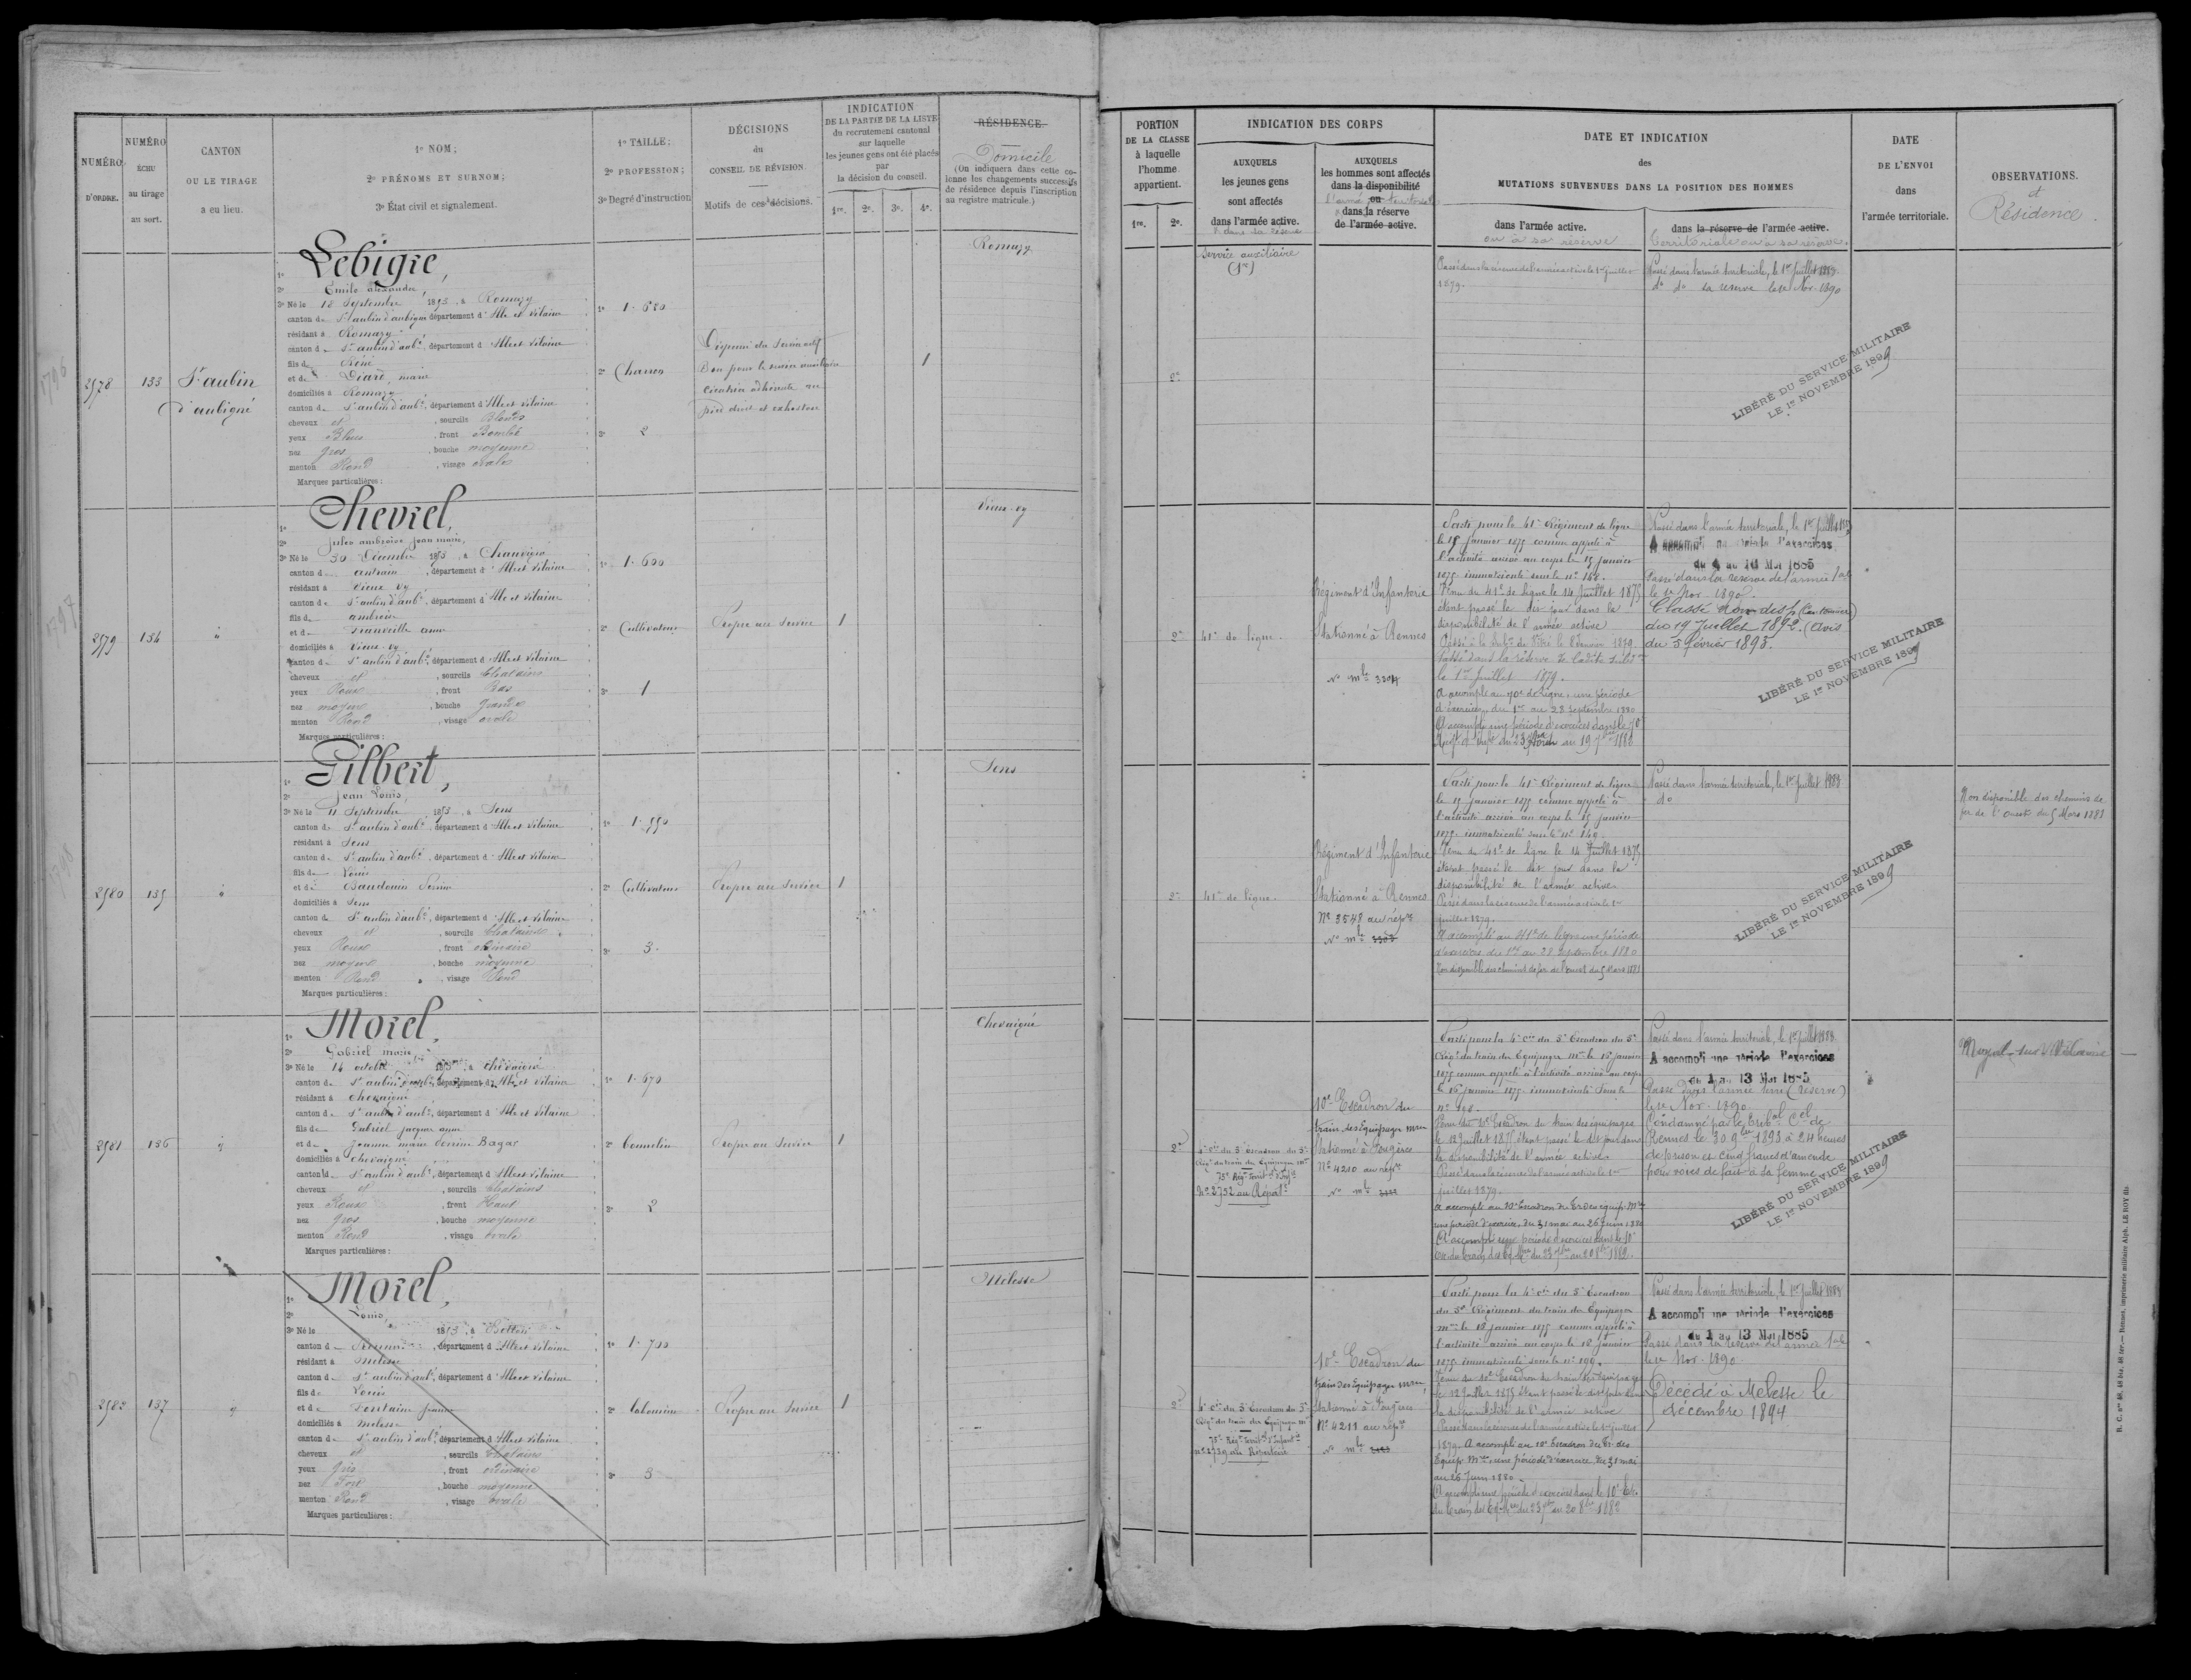 NUMÉRO
D'ORDRE.
NUMÉRO
ÉCHU
au tirage
au sort.
CANTON
OU LE TIRAGE
a eu lieu.
1º NOM;
2º PRÉNOMS ET SURNOM;
3º État civil et signalement.
1º TAILLE;
2º PROFESSION;
3º Degré d'instruction
DÉCISIONS
du
CONSEIL DE RÉVISION.
Motifs de ces décisions.
INDICATION
DE LA PARTIE DE LA LISTE
du recrutement cantonal
sur laquelle
les jeunes gens ont été placés
par
la décision du conseil.
1re. 2e. 3e. 4e.
RÉSIDENCE.
Domicile
(On indiquera dans cette co-
lonne les changements successifs
de résidence depuis l'inscription
au registre matricule.)
PORTION
DE LA CLASSE
à laquelle
l'homme
appartient.
1re. 2e.
INDICATION DES CORPS
AUXQUELS
les jeunes gens
sont affectés
dans l'armée active.
AUXQUELS
les hommes sont affectés
dans la disponibilité
ou
dans la réserve
de l'armée active.
DATE ET INDICATION
des
MUTATIONS SURVENUES DANS LA POSITION DES HOMMES
dans l'armée active.
ou à sa réserve
dans la réserve de l'armée active.
territoriale ou à sa réserve.
DATE
DE L'ENVOI
dans
l'armée territoriale.
OBSERVATIONS.
et
Résidence.
2578
133
St aubin
d'aubigné
Lebigre,
2º Emile alexandre,
3º Né le 18 Septembre 1853, à Romazy
canton de St aubin d'aubigné département d'Ille et Vilaine
résidant à Romazy
canton de St aubin d'aubé, département d'Ille et Vilaine
fils de René
et de Diard, marie
domiciliés à Romazy
canton de St aubin d'aubé, département d'Ille et Vilaine
cheveux et, sourcils Blonds
yeux Bleus, front Bombé
nez gros, bouche moyenne
menton Rond, visage ovale
Marques particulières :
1º 1.680
2º Charron
3º 2
Bon pour le service auxiliaire
1
Romazy
2e
Service auxiliaire
(1re)
Passé dans la réserve de l'armée active le 1er juillet
1879.
Passé dans l'armée territoriale, le 1er Juillet 1883
do do sa réserve le 1er Nov. 1890
LIBÉRÉ DU SERVICE MILITAIRE
LE 1er NOVEMBRE 1899
2579
134
Chevrel,
2º Jules ambroise jean marie,
3º Né le 30 Décembre 1853, à Chauvigné
canton d antrain, département d'Ille et Vilaine
résidant à Vieux vy
canton de St aubin d'aubé, département d'Ille et Vilaine
fils d ambroise
domiciliés à Vieux vy
canton de St aubin d'aubé, département d'Ille et Vilaine
cheveux et, sourcils Chatains
yeux Roux, front Bas
nez moyen, bouche grande
menton Rond, visage ovale
Marques particulières :
1º 1.600
2º Cultivateur
3º 1
Propre au Service
1
Vieux-vy
2e
41e de ligne.
Régiment d'Infanterie
Stationné à Rennes
No mle 3304
Parti pour le 41e Régiment de ligne
le 15 Janvier 1875 comme appelé à
l'activité arrivé au corps le 15 janvier
1875 immatriculé sous le no 154.
Venu du 41e de ligne le 14 Juillet 1875
étant passé le dit jour dans la
disponibilité de l'armée active
Passé dans la réserve de ladite
le 1er Juillet 1879.
A accompli au 70e de Ligne, une période
d'exercices, du 1er au 28 Septembre 1880
A accompli une période d'exercices dans le 70e
Passé dans l'armée territoriale, le 1er Juillet 1883
A accompli une période d'exercices
Passé dans la réserve de l'armée tale
le 1er Nov. 1890.
Classé non disp. (Cantonnier)
du 19 Juillet 1892. (Avis
du 3 février 1893.
LIBÉRÉ DU SERVICE MILITAIRE
LE 1er NOVEMBRE 1899
2580
135
Gilbert,
2º Jean Louis,
3º Né le 11 Septembre 1853, à Sens
canton de St aubin d'aubé, département d'Ille et Vilaine
résidant à Sens
canton de St aubin d'aubé, département d'Ille et Vilaine
fils de Louis
et de Baudouin Perrine
domiciliés à Sens
canton de St aubin d'aubé, département d'Ille et Vilaine
cheveux et, sourcils Chatains
yeux Roux, front ordinaire
nez moyen, bouche moyenne
menton Rond, visage Rond
Marques particulières :
1º 1.550
2º Cultivateur
3º 3.
Propre au Service
1
Sens
2e
41e de ligne.
Régiment d'Infanterie
Stationné à Rennes
No 3548 au répre
No mle 3303
Parti pour le 41e Régiment de ligne
le 15 Janvier 1875 comme appelé à
l'activité arrivé au corps le 15 janvier
1875 immatriculé sous le no 149.
Venu du 41e de ligne le 14 Juillet 1875
étant passé le dit jour dans la
disponibilité de l'armée active
Passé dans la réserve de l'armée active le 1er
juillet 1879.
A accompli au 41e de ligne une période
d'exercices du 1er au 28 septembre 1880
Non disponible des chemins de fer de l'ouest du 5 Mars 1881
Passé dans l'armée territoriale, le 1er Juillet 1883
do
Non disponible des chemins de
fer de l'ouest du 5 Mars 1881
LIBÉRÉ DU SERVICE MILITAIRE
LE 1er NOVEMBRE 1899
2581
136
Morel,
2º Gabriel marie
3º Né le 14 octobre 1853, à chevaigné
canton de St aubin d'aubé, département d'Ille et Vilaine
résidant à chevaigné
canton de St aubin d'aubé, département d'Ille et Vilaine
fils de Gabriel jacques anne
et de Jeanne marie Perrine Bagas
domiciliés à chevaigné
canton de St aubin d'aubé, département d'Ille et Vilaine
cheveux et, sourcils Chatains
yeux Roux, front Haut
nez gros, bouche moyenne
menton Rond, visage ovale
Marques particulières :
1º 1.670
2º Tonnelier
3º 2
Propre au Service
1
Chevaigné
2e
4e Cie du 3e Escadron du 3e
Régt du train des Equipages mre
75e Régt Territ. d'Infie
No 2752 au Réperre
10e Escadron du
train des Equipages mre
Stationné à Fougères
No 4210 au répre
No mle
Parti pour la 4e Cie du 3e Escadron du 3e
Régt du train des Equipages mre le 18 janvier
1875 comme appelé à l'activité arrivé au corps
le 18 janvier 1875 immatriculé sous le
no 198.
Venu du 10e Escadron du train des équipages
le 12 Juillet 1875 étant passé le dit jour dans
la disponibilité de l'armée active
Passé dans la réserve de l'armée active le 1er
juillet 1879.
A accompli au 10e Escadron du Tr des équip. Mres
une période d'exercices du 31 mai au 26 Juin 1880
A accompli une période d'exercices dans le 10e
Esc. du train des Eq. Mres du 23 7bre au 20 8bre 1882.
Passé dans l'armée territoriale, le 1er Juillet 1883
A accompli une période d'exercices
du 1 au 13 Mai 1885
Passé dans l'armée terre (réserve)
le 1er Nov. 1890
Condamné par le tribal Cel de
Rennes le 30 9bre 1893 à 24 heures
de prison et cinq francs d'amende
pour voies de fait à sa femme.
Noyal-sur-Vilaine
LIBÉRÉ DU SERVICE MILITAIRE
LE 1er NOVEMBRE 1899
2582
137
Morel,
2º Louis,
3º Né le 1853, à Betton
canton de Rennes, département d'Ille et Vilaine
résidant à Melesse
canton de St aubin d'aubé, département d'Ille et Vilaine
fils de Louis
et de Fontaine
domiciliés à Melesse
canton de St aubin d'aubé, département d'Ille et Vilaine
cheveux et, sourcils Chatains
yeux gris, front ordinaire
nez Fort, bouche moyenne
menton Rond, visage ovale
Marques particulières :
1º 1.700
2º laboureur
3º 3
Propre au Service
1
Melesse
2e
4e Cie du 3e Escadron du 3e
Régt du train des Equipages mre
75e Régt Territ. d'Infanterie
no 2759 au Répertoire
10e Escadron du
train des Equipages mre
Stationné à Fougères
No 4211 au répre
No mle
Parti pour la 4e Cie du 3e Escadron
du 3e Régiment du train des Equipages
mre le 18 janvier 1875 comme appelé à
l'activité arrivé au corps le 18 janvier
1875 immatriculé sous le no 199.
Venu du 10e Escadron du train des équipages
le 12 Juillet 1875 étant passé le dit jour dans
la disponibilité de l'armée active
Passé dans la réserve de l'armée active le 1er juillet
1879. A accompli au 10e Escadron du Tr. des
Equip. Mres une période d'exercices du 31 mai
au 26 Juin 1880
A accompli une période d'exercices dans le 10e Esc.
du train des Eq. Mres du 23 7bre au 20 8bre 1882
Passé dans l'armée territoriale, le 1er Juillet 1883
A accompli une période d'exercices
du 1 au 13 Mai 1885
Passé dans la réserve de l'armée tale
le 1er Nov. 1890
Décédé à Melesse le
décembre 1894
1796
1797
1798